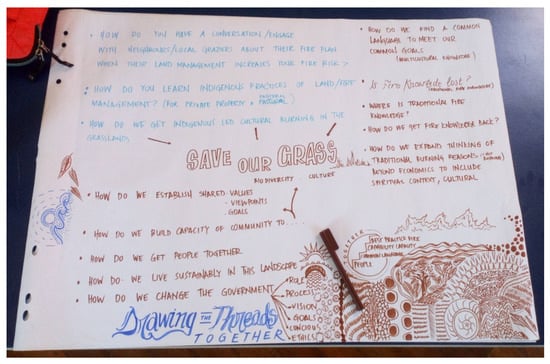 • HOW DO YOU HAVE A CONVERSATION/ENGAGE
WITH NEIGHBOURS/LOCAL GRAZIERS ABOUT THEIR FIRE PLAN
WHEN THEIR LAND MANAGEMENT INCREASES YOUR FIRE RISK?
• HOW DO YOU LEARN INDIGENOUS PRACTICES OF LAND/FIRE
MANAGEMENT? (FOR PRIVATE PROPERTY & PASTORAL)
• HOW DO WE GET INDIGENOUS LED CULTURAL BURNING IN THE
GRASSLANDS
SAVE OUR GRASS
BIODIVERSITY CULTURE
• HOW DO WE ESTABLISH SHARED VALUES
- VIEWPOINTS
GOALS
• HOW DO WE BUILD CAPACITY OF COMMUNITY TO....
• HOW DO WE GET PEOPLE TOGETHER
• HOW DO WE LIVE SUSTAINABLY IN THIS LANDSCAPE
• HOW DO WE CHANGE THE GOVERNMENT
RULE
PROCESS
VISION
GOALS
ETHICS
Drawing THE Threads
TOGETHER
• HOW DO WE FIND A COMMON
LANGUAGE TO MEET OUR
COMMON GOALS
(MULTICULTURAL KNOWLEDGE)
• Is Fire Knowledge lost?
• WHERE IS TRADITIONAL FIRE
KNOWLEDGE?
• HOW DO WE GET FIRE KNOWLEDGE BACK?
• HOW DO WE EXPAND THINKING OF
TRADITIONAL BURNING REASONS
BEYOND ECONOMICS TO INCLUDE
SPIRITUAL CONTEXT, CULTURAL
TOGETHER
BEST PRACTICE FIRE
CAPABILITY CAPACITY
COMMON LANGUAGE
PEOPLE